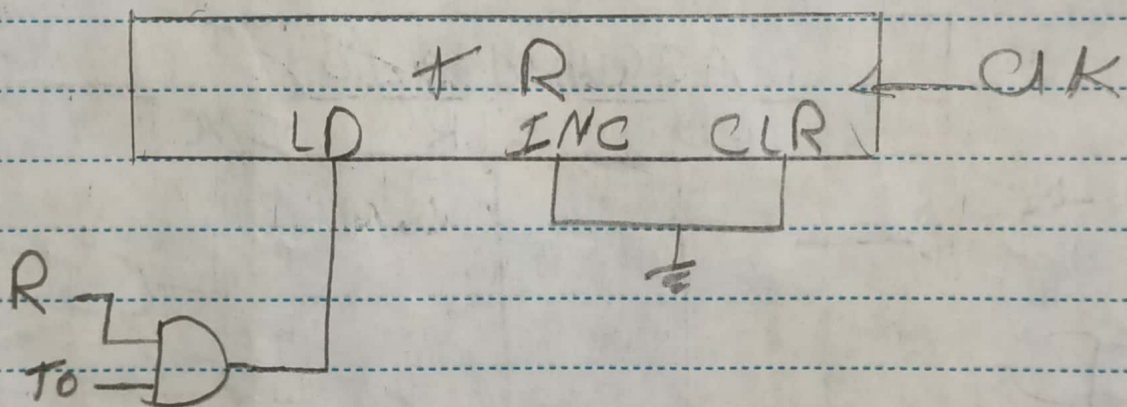 TR
CLK
LD INC CLR
R
T0